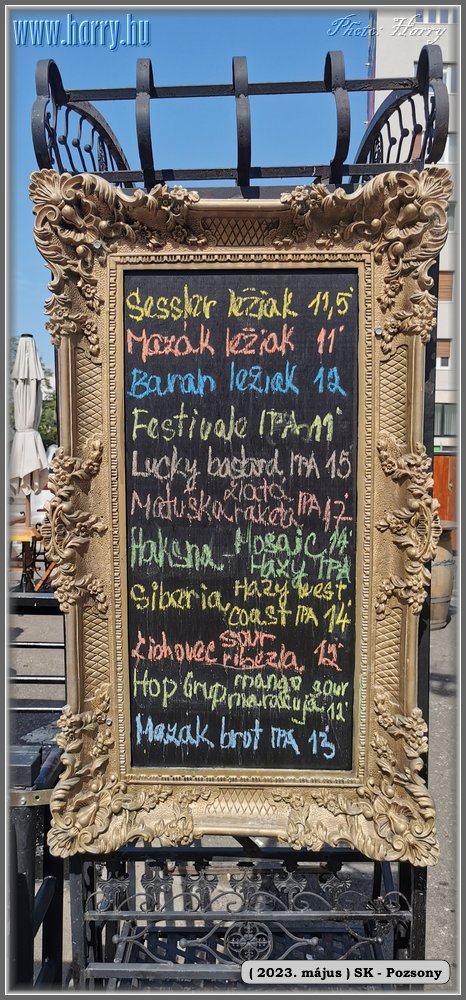 www.harry.hu
Photo: Harry
Sessler ležiak 11,5°
Mazák ležiak 11°
Banan ležiak 12
Festivale IPA 11°
Lucky bastard IPA 15
Matuška zlatá raketa IPA 17°
Haksna Mosaic 14°
Haxy IPA
Siberia Hazy west
coast IPA 14
Lichovec sour
ribezla 12°
Hop Grup mango sour
marakuja 12°
Mazak brut IPA 13
( 2023. május ) SK - Pozsony